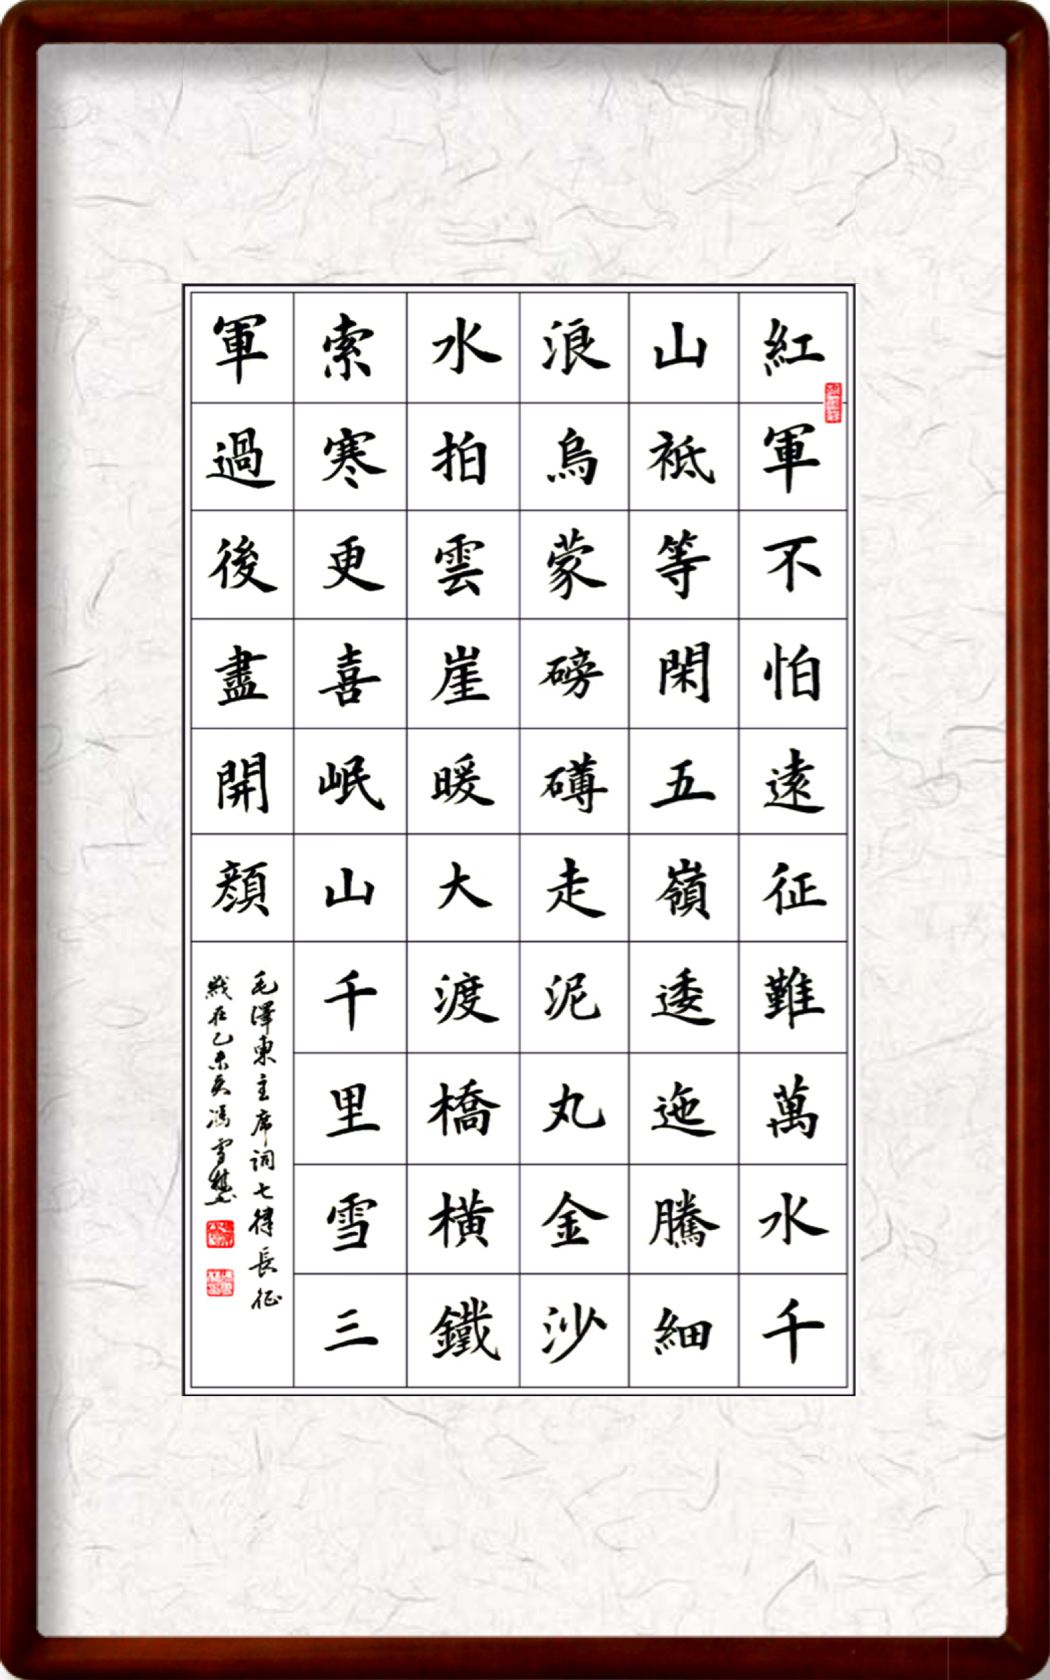 紅軍不怕遠征難萬水千
山袛等閑五嶺逶迤騰細
浪烏蒙磅礡走泥丸金沙
水拍雲崖暖大渡橋橫鐵
索寒更喜岷山千里雪三
軍過後盡開顔
毛澤東主席詞七律長征
歲在乙未夏馮雪